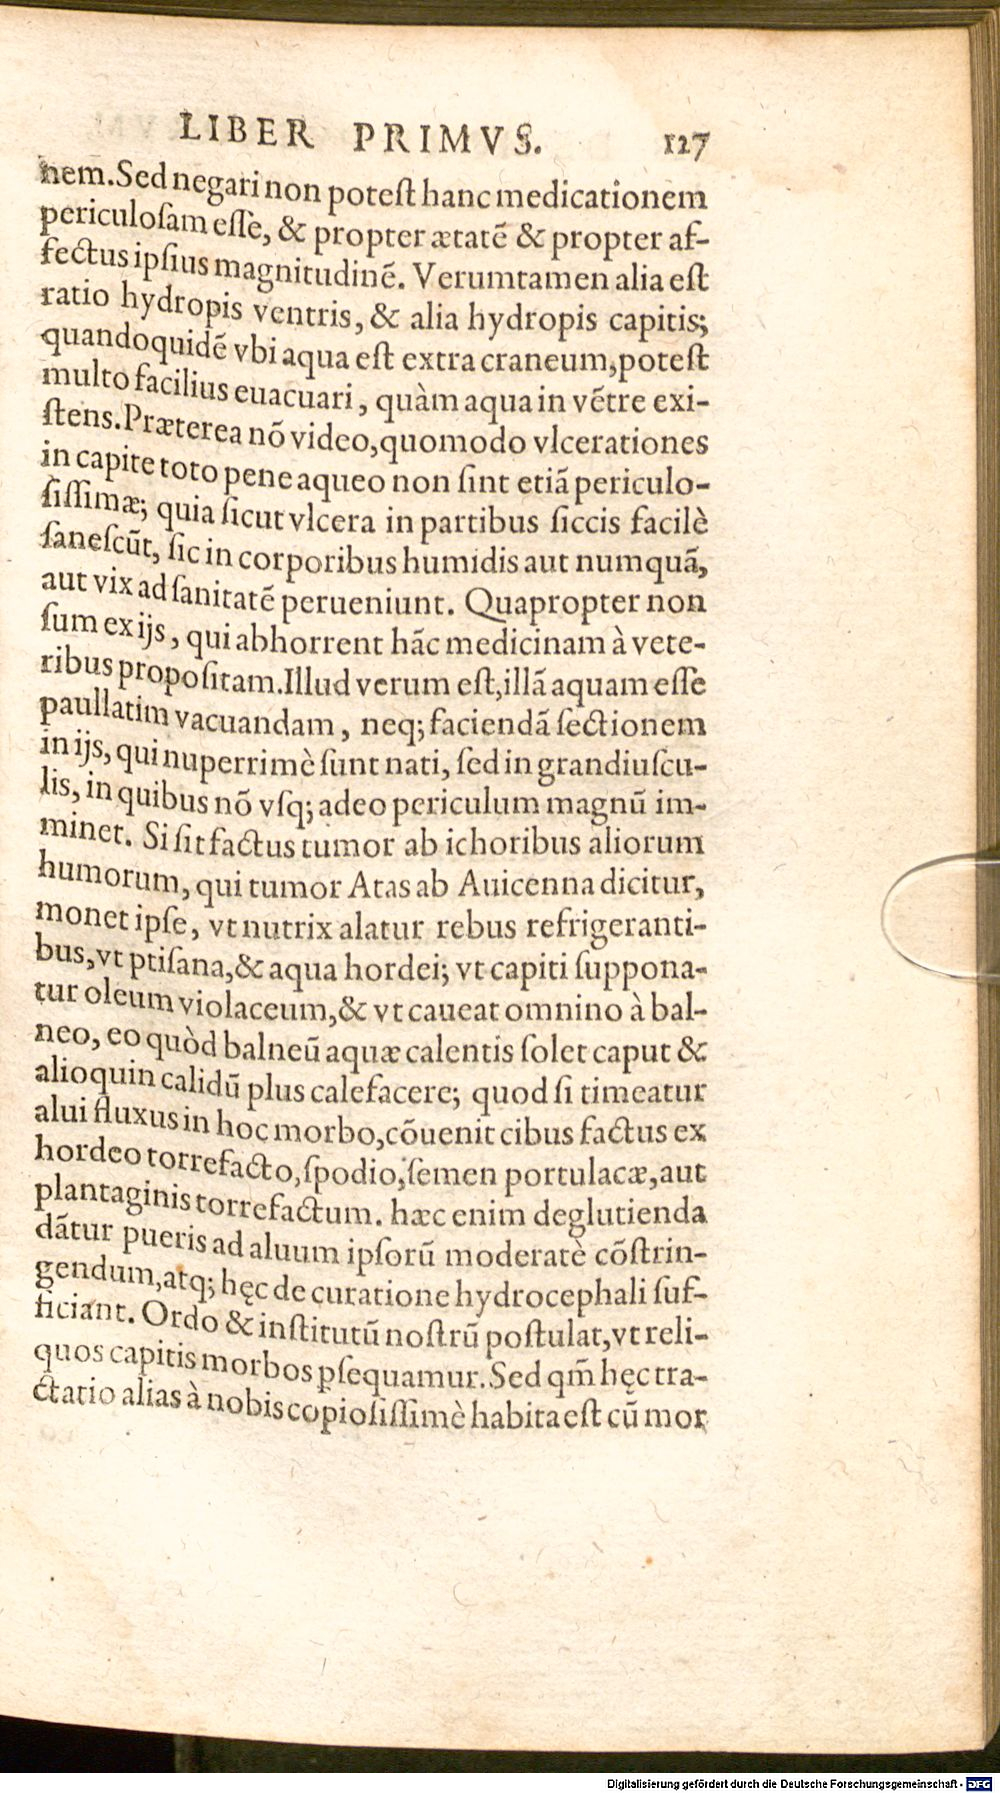 LIBER PRIMVS. 127
nem. Sed negari non poteſt hanc medicationem
periculoſam eſſe, & propter ætatē & propter af-
fectus ipſius magnitudinē. Verumtamen alia eſt
ratio hydropis ventris, & alia hydropis capitis;
quandoquidē vbi aqua eſt extra craneum, poteſt
multo facilius euacuari, quàm aqua in vētre exi-
ſtens. Præterea nō video, quomodo vlcerationes
in capite toto pene aqueo non ſint etiā periculo-
ſiſſimæ; quia ſicut vlcera in partibus ſiccis facilè
ſaneſcūt, ſic in corporibus humidis aut numquā,
aut vix ad ſanitatē perueniunt. Quapropter non
ſum ex ijs, qui abhorrent hāc medicinam à vete-
ribus propoſitam. Illud verum eſt, illā aquam eſſe
paullatim vacuandam, neq; faciendā ſectionem
in ijs, qui nuperrimè ſunt nati, ſed in grandiuſcu-
lis, in quibus nō vſq; adeo periculum magnū im-
minet. Si ſit factus tumor ab ichoribus aliorum
humorum, qui tumor Atas ab Auicenna dicitur,
monet ipſe, vt nutrix alatur rebus refrigeranti-
bus, vt ptiſana, & aqua hordei; vt capiti ſuppona-
tur oleum violaceum, & vt caueat omnino à bal-
neo, eo quòd balneū aquæ calentis ſolet caput &
alioquin calidū plus calefacere; quod ſi timeatur
alui fluxus in hoc morbo, cōuenit cibus factus ex
hordeo torrefacto, ſpodio, ſemen portulacæ, aut
plantaginis torrefactum. hæc enim deglutienda
dātur pueris ad aluum ipſorū moderatè cōſtrin-
gendum, atq; hęc de curatione hydrocephali ſuf-
ficiant. Ordo & inſtitutū noſtrū poſtulat, vt reli-
quos capitis morbos ꝑſequamur. Sed qm̄ hęc tra-
ctatio alias à nobis copioſiſſimè habita eſt cū mor
Digitalisierung gefördert durch die Deutsche Forschungsgemeinschaft - DFG